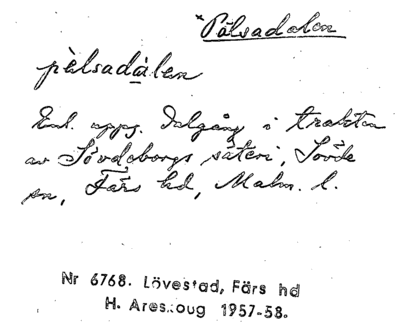 ×Pålsadalen
pèlsadàlen
Enl. uppg. dalgång i trakten
av Sövdeborgs säteri, Sövde
sn, Färs hd, Malm. l.
Nr 6768. Lövestad, Färs hd
H. Areskoug 1957-58.